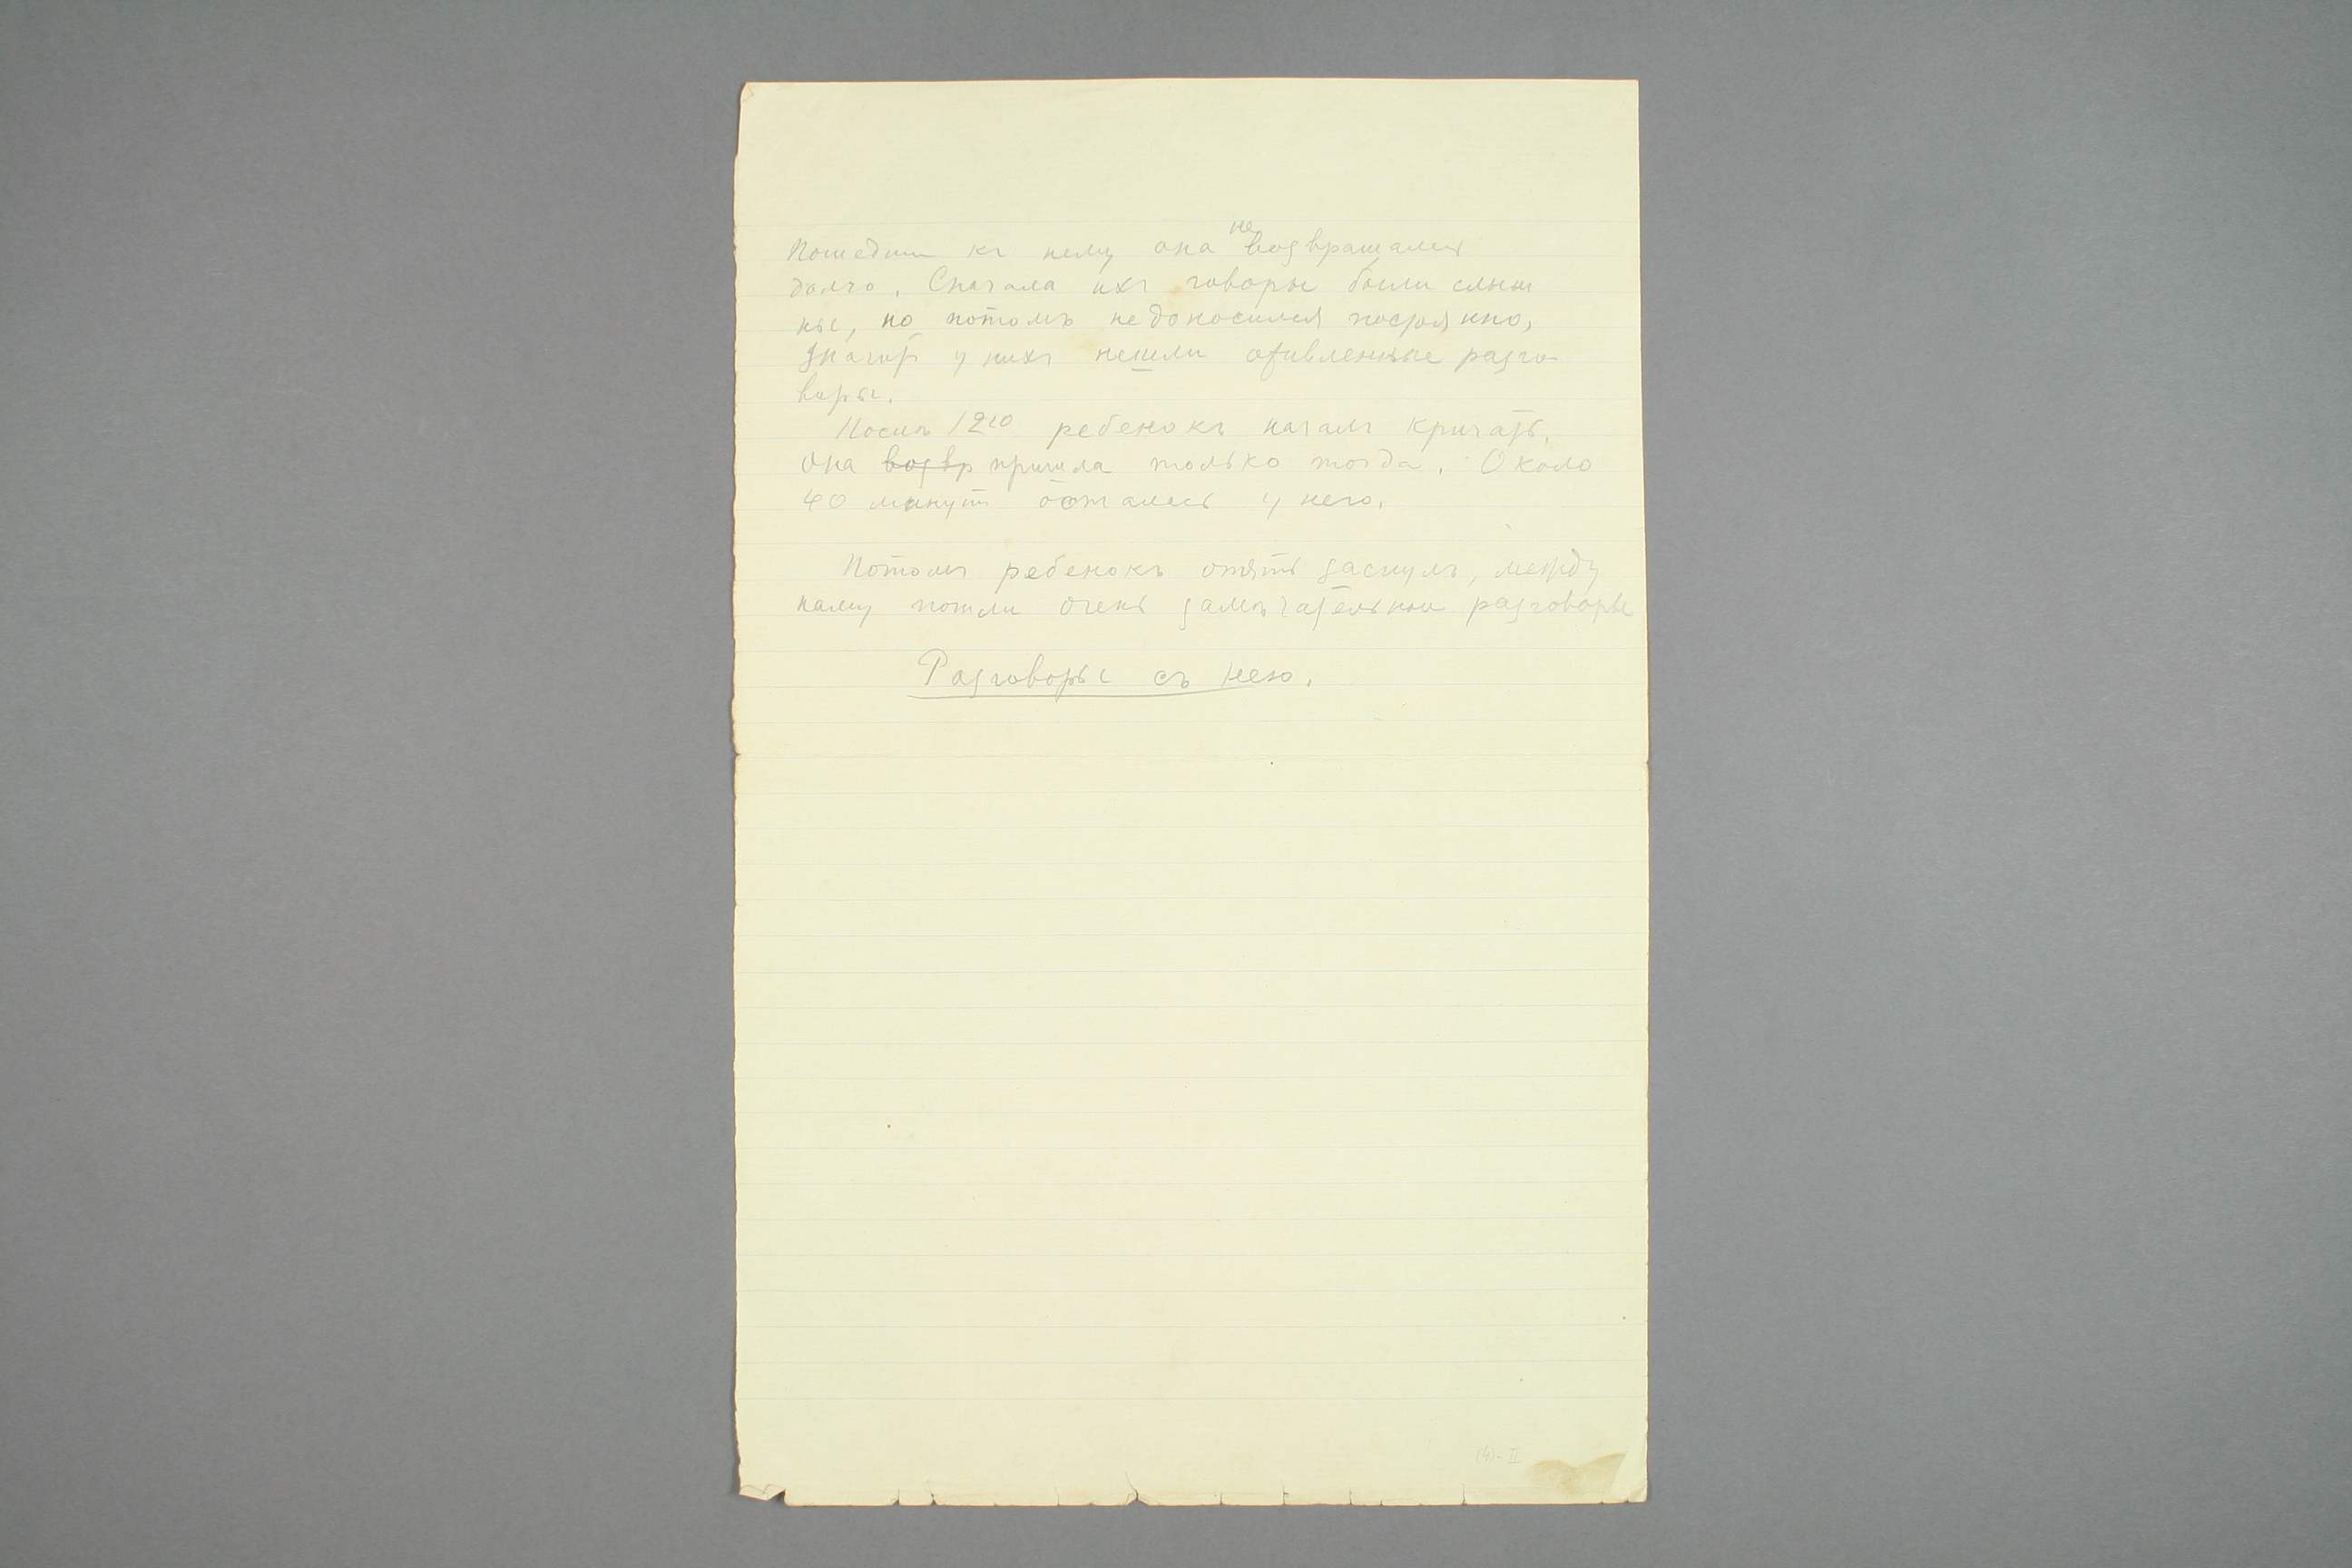 Пошедши къ нему она не возвращалась
долго. Сначала ихъ говоры были слыш
ны, но потомъ не доносился постоянно,
значитъ у нихъ не шли оживленные разго-
воры.
Послѣ 12 10 ребенокъ началъ кричать.
Она возвр пришла только тогда. Около
40 минутъ осталась у него.
Потомъ ребенокъ опять заснулъ, между
нами пошли очень замѣчательные разговоры
Разговоры съ нею.
(4)-II